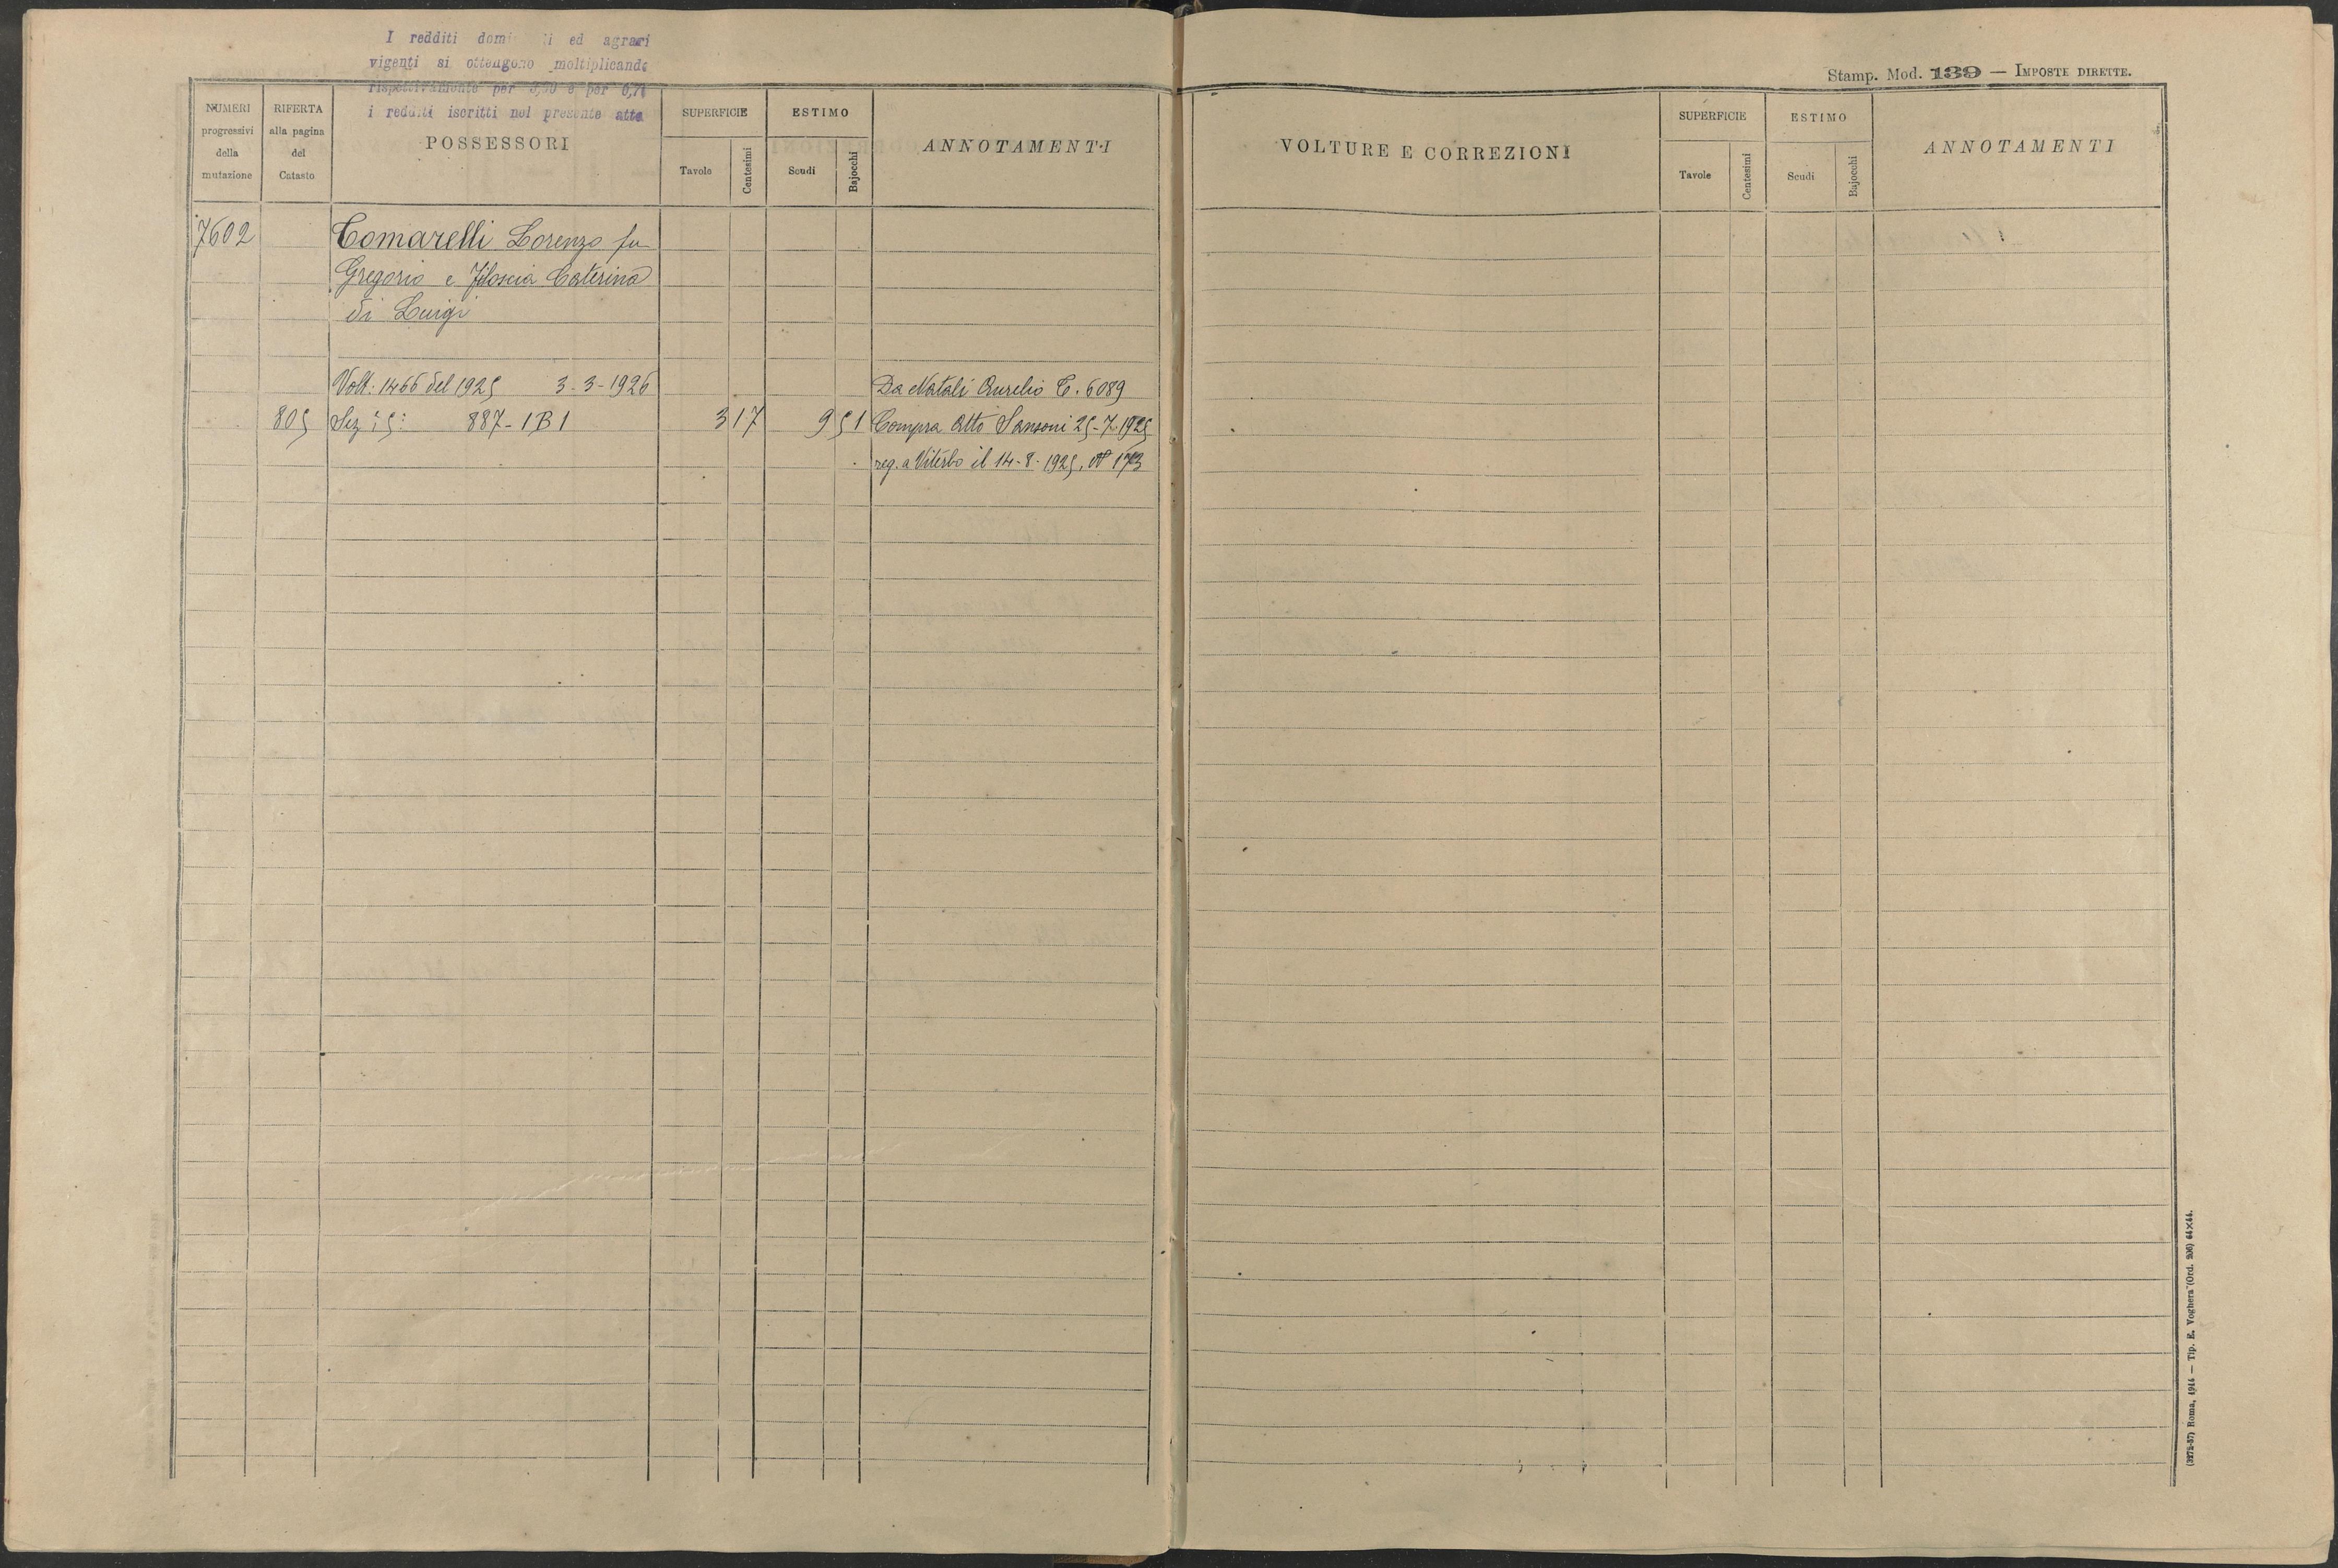 I redditi ed agrari
vigenti si ottengono moltiplicando
rispettivamente per e per
i redditi iscritti nel presente atto
Stamp. Mod. 139 — IMPOSTE DIRETTE.
NUMERI progressivi della mutazione
RIFERTA alla pagina del Catasto
POSSESSORI
SUPERFICIE
Tavole Centesimi
ESTIMO
Scudi Bajocchi
ANNOTAMENTI
VOLTURE E CORREZIONI
SUPERFICIE
Tavole Centesimi
ESTIMO
Scudi Bajocchi
ANNOTAMENTI
7602 Comarelli Lorenzo fu
Gregorio e Caterina
di Luigi
Volt: 1466 del 1925 3-3-1926 Da Natali Aurelio C. 6089
805 Sez 5: 887-1B1 3 17 9 51 Compra Atto Sansoni 25-7-1925
reg. a Viterbo il 14-8-1925, N° 173
(3272-37) Roma, 1914 — Tip. E. Voghera (Ord. 206) 64×44.